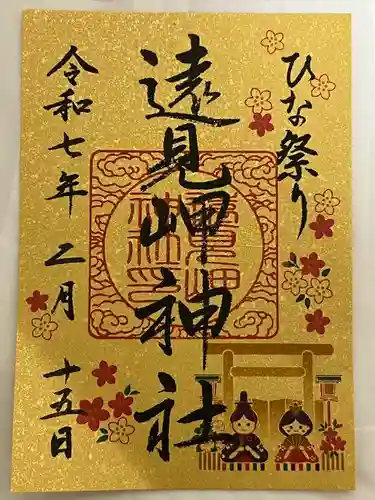 ひな祭り
遠見岬神社
令和七年二月十五日